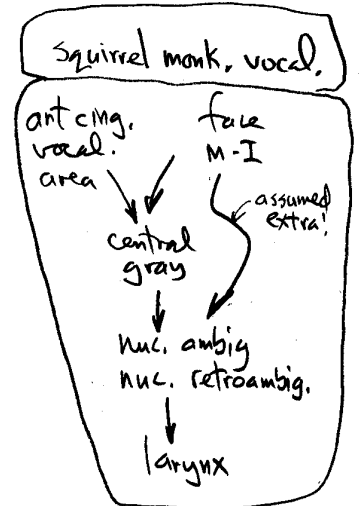 squirrel monk. vocal.
ant cing.
vocal.
area
face
M-I
assumed
extra!
central
gray
nuc. ambig
nuc. retroambig.
larynx